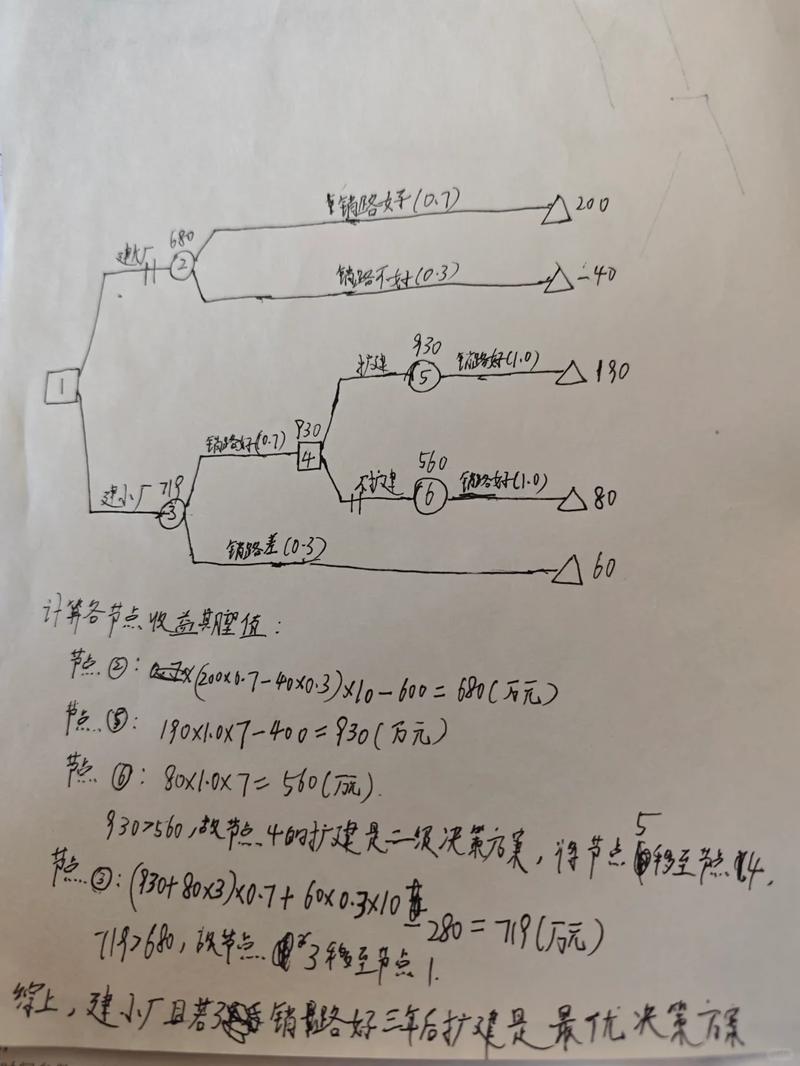 销路好(0.7)
200
680
建大厂
2
销路不好(0.3)
-40
1
930
扩建
5
销路好(1.0)
190
销路好(0.7)
930
4
560
不扩建
6
销路好(1.0)
80
建小厂
719
3
销路差(0.3)
60
计算各节点收益期望值:
节点②: (200×0.7-40×0.3)×10-600=680(万元)
节点⑤: 190×1.0×7-400=930(万元)
节点⑥: 80×1.0×7=560(万元).
930>560,故节点4的扩建是二级决策方案,将节点5移至节点4.
节点③:(930+80×3)×0.7+60×0.3×10
-280=719(万元)
719>680,故节点3移至节点1.
综上,建小厂且若销路好三年后扩建是最优决策方案